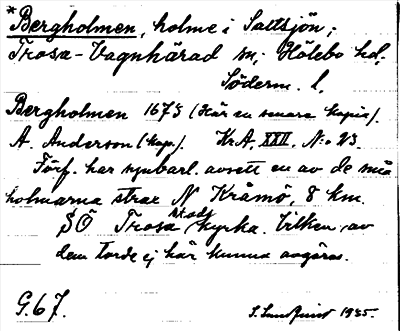 *Bergholmen, holme i Saltsjön;
Trosa-Vagnhärad sn, Hölebo hd,
Söderm. l.
Bergholmen 1675 (här en senare kopia).
A. Anderson (kop.). Kr.A. XXII. N:o 23.
Förf. har synbarl. avsett en av de små
holmarna strax N Krämö, 8 km.
SÖ Trosa stads kyrka. Vilken, av
dem torde ej här kunna avgöras.
G. 67. S. Lundquist 1935.